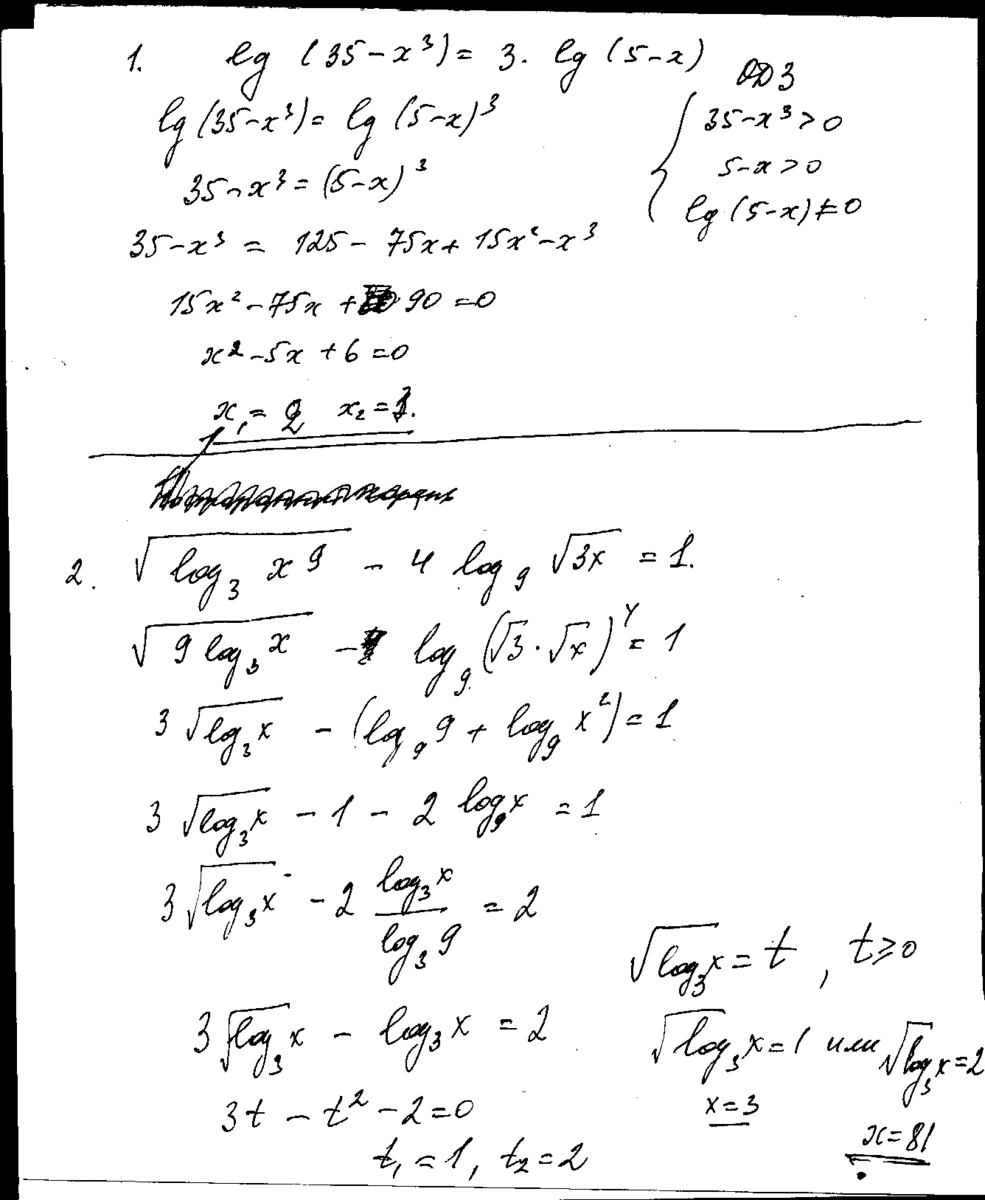 1. lg (35-x³) = 3. lg (5-x)
ОДЗ
lg (35-x³) = lg (5-x)³
35-x³>0
5-x>0
lg (5-x)≠0
35-x³ = (5-x)³
35-x³ = 125 - 75x + 15x² - x³
15x² - 75x + 90 = 0
x² - 5x + 6 = 0
x₁ = 2 x₂ = 3.
2. √(log₃ x⁹) - 4 log₉ √(3x) = 1.
√(9 log₃ x) - log₉ (√3·√x)⁴ = 1
3 √(log₃ x) - (log₉ 9 + log₉ x²) = 1
3 √(log₃ x) - 1 - 2 log₉ x = 1
3 √(log₃ x) - 2 log₃ x / log₃ 9 = 2
√(log₃ x) = t , t ≥ 0
3 √(log₃ x) - log₃ x = 2
√(log₃ x) = 1 или √(log₃ x) = 2
3t - t² - 2 = 0
x = 3
t₁ = 1, t₂ = 2
x = 81